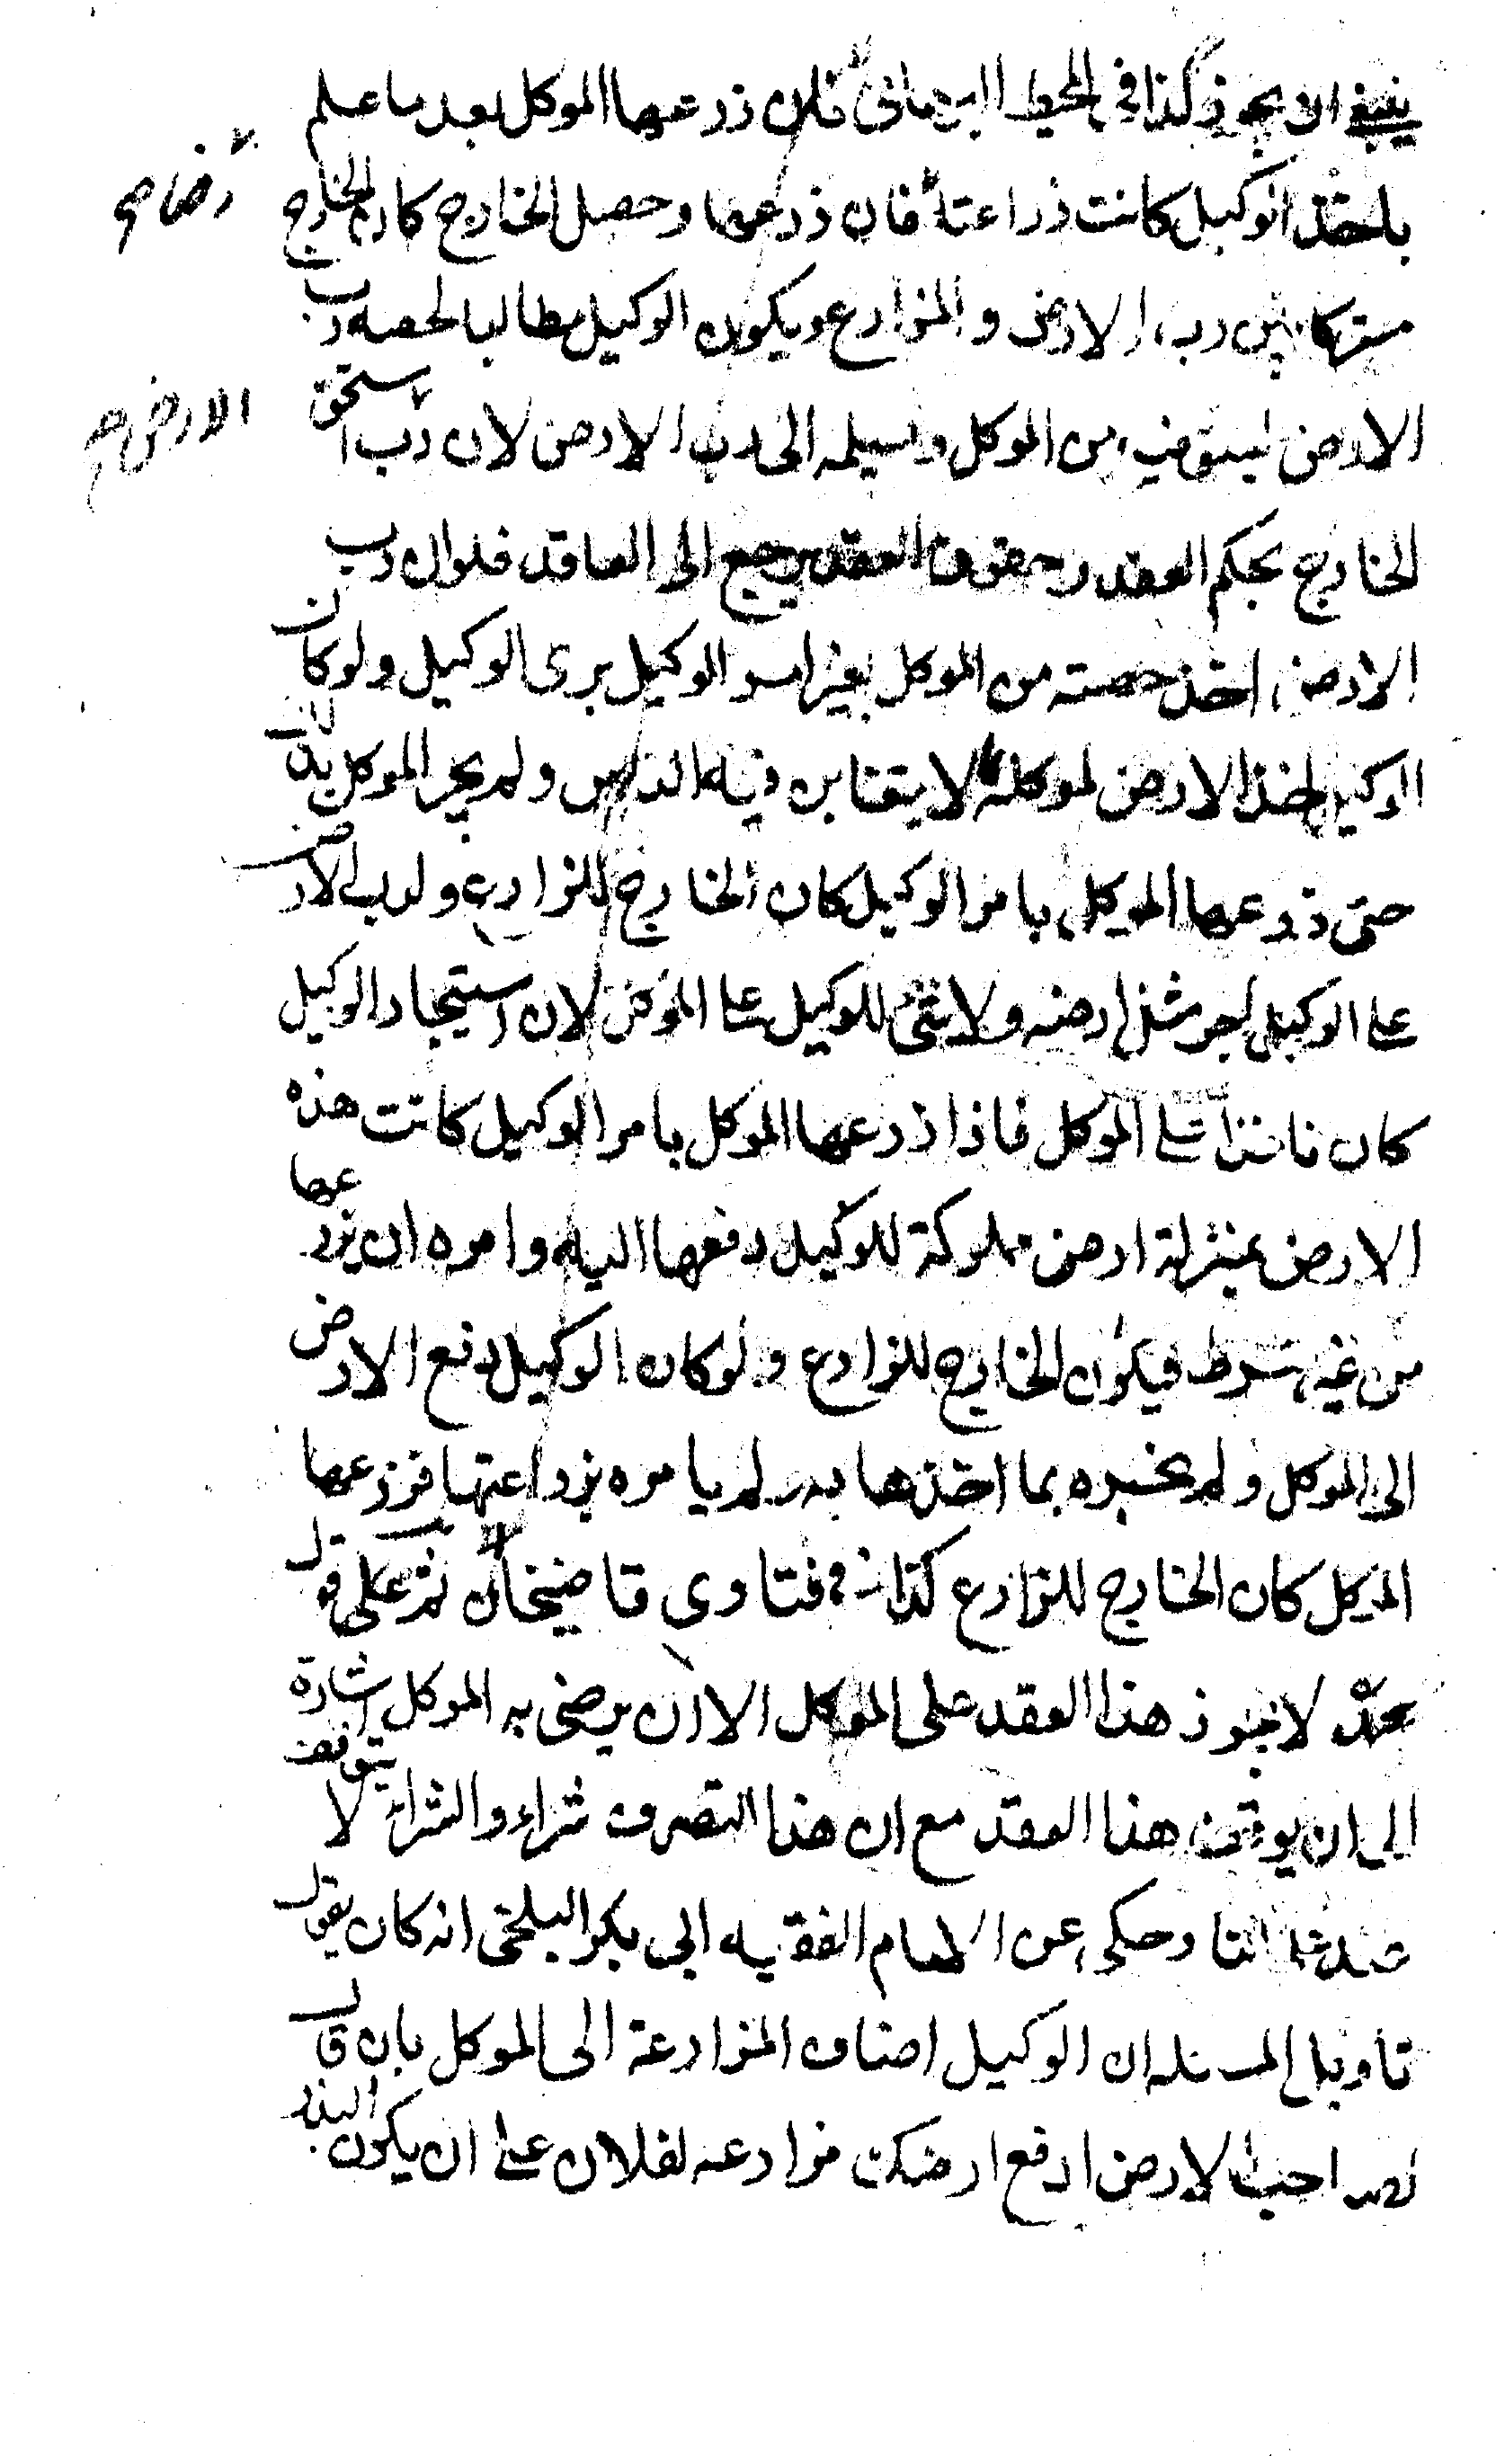 ينبغي ان يجوز كذا في المحيط البرهاني فان زرعها الموكل بعد ما علم
باخذ الوكيل كانت زراعته رضاء فان زرعها وحصل الخارج كان الخارج
مشتركا بين رب الارض والمزارع ويكون الوكيل مطالبا لحصه رب
الارض ليستوفي من الموكل ويسلمه الى رب الارض لان رب الارض استحق
الخارج بحكم العقد وحقوق العقد يرجع الى العاقد فلو ان رب
الارض اخذ حصته من الموكل بغير امر الوكيل برى الوكيل ولو كان
الوكيل اخذ الارض لموكله لا يتغابن فيه الناس ولم يخبر الموكل بذلك
حتى زرعها الموكل بامر الوكيل كان الخارج للمزارع ولرب الارض
على الوكيل اجر مثل ارضه ولا شئ للوكيل على الموكل لان استيجار الوكيل
كان نافذا على الموكل فاذا زرعها الموكل بامر الوكيل كانت هذه
الارض بمنزلة ارض مملوكة للوكيل دفعها اليه وامره ان يزرعها
من غير شرط فيكون الخارج للمزارع ولو كان الوكيل دفع الارض
الى الموكل ولم يخبره بما اخذها به ولم يامره بزراعتها فزرعها
الموكل كان الخارج للمزارع كذا في فتاوى قاضيخان ثم على قول
محمد لا يجوز هذا العقد على الموكل الا ان يرضى به الموكل اشارة
الى ان يوقف هذا العقد مع ان هذا التصرف شراء والشراء لا يتوقف
عند علمائنا وحكى عن الامام الفقيه ابي بكر البلخي انه كان يقول
تاويل المسئله ان الوكيل اضاف المزارعة الى الموكل بان قال
لصاحب الارض ادفع ارضك مزارعه لفلان على ان يكون البذر